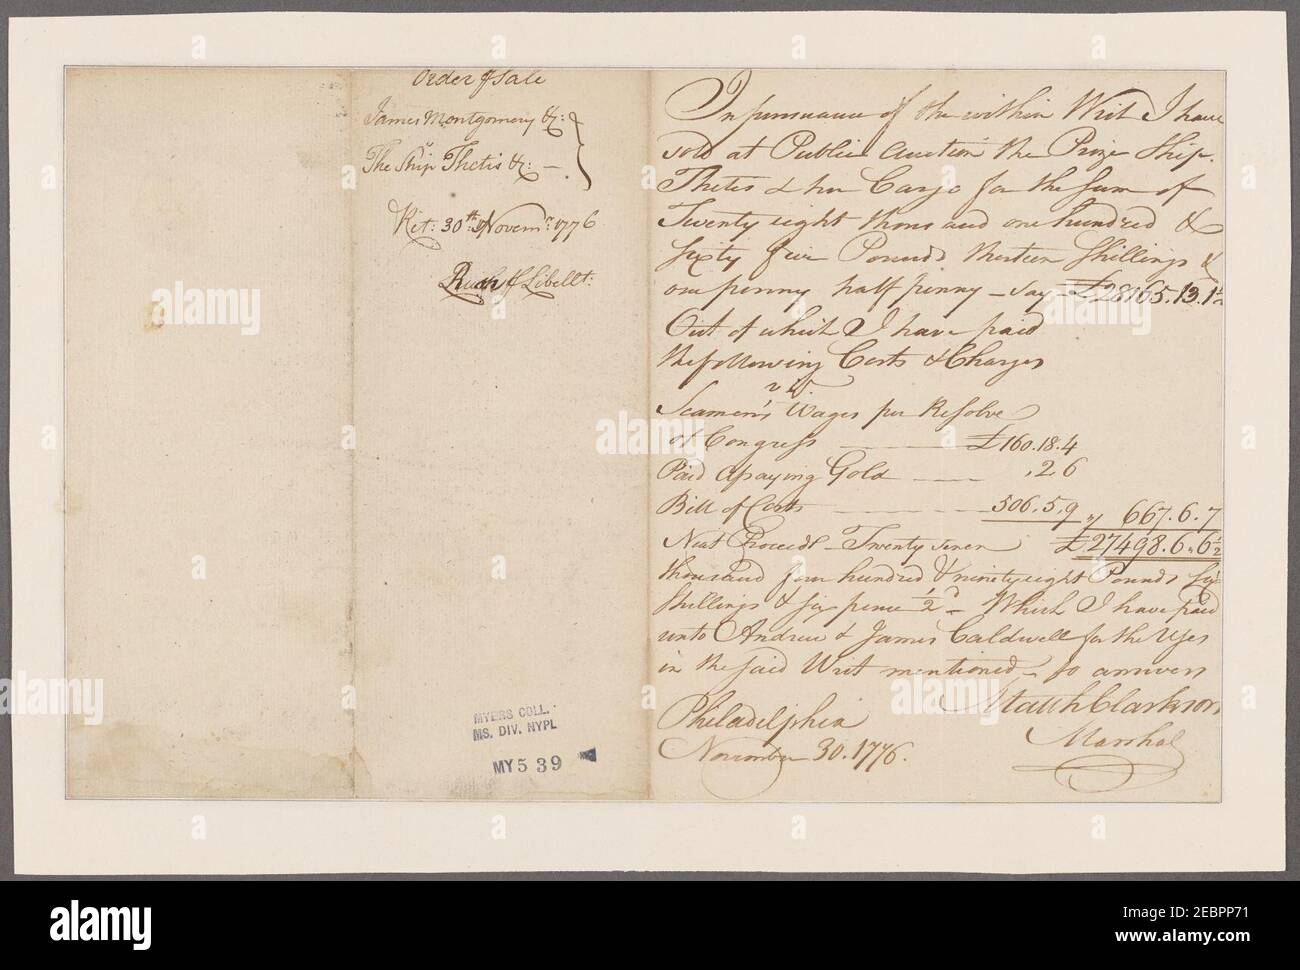 Order of Sale
James Montgomery &c:
vs
The Ship Thetis &c: —
Ret: 30th Novemr: 1776
Rush f Libellt:
MYERS COLL.
MS. DIV. NYPL
MY 5 39
In pursuance of the within Writ I have
sold at Public auction the Prize Ship
Thetis & her Cargo for the Sum of
Twenty eight thousand one hundred &
Sixty five Pounds thirteen Shillings &
one penny half penny — Say — £28165.13.1½
Out of which I have paid
the following Costs & Charges
viz
Seamen's Wages per Resolve
of Congress — £160.18.4
Paid Gold — .2 6
Bill of Costs — 506.5.9 667.6.7
Neat Proceeds — Twenty seven £27498.6.6½
thousand four hundred & ninety eight Pounds Six
Shillings & six pence ½d — Which I have paid
unto Andrew & James Caldwell for the Uses
in the said Writ mentioned — So answers
Matth Clarkson
Marshal
Philadelphia
November 30. 1776.
alamy
Image ID: 2EBPP71
www.alamy.com